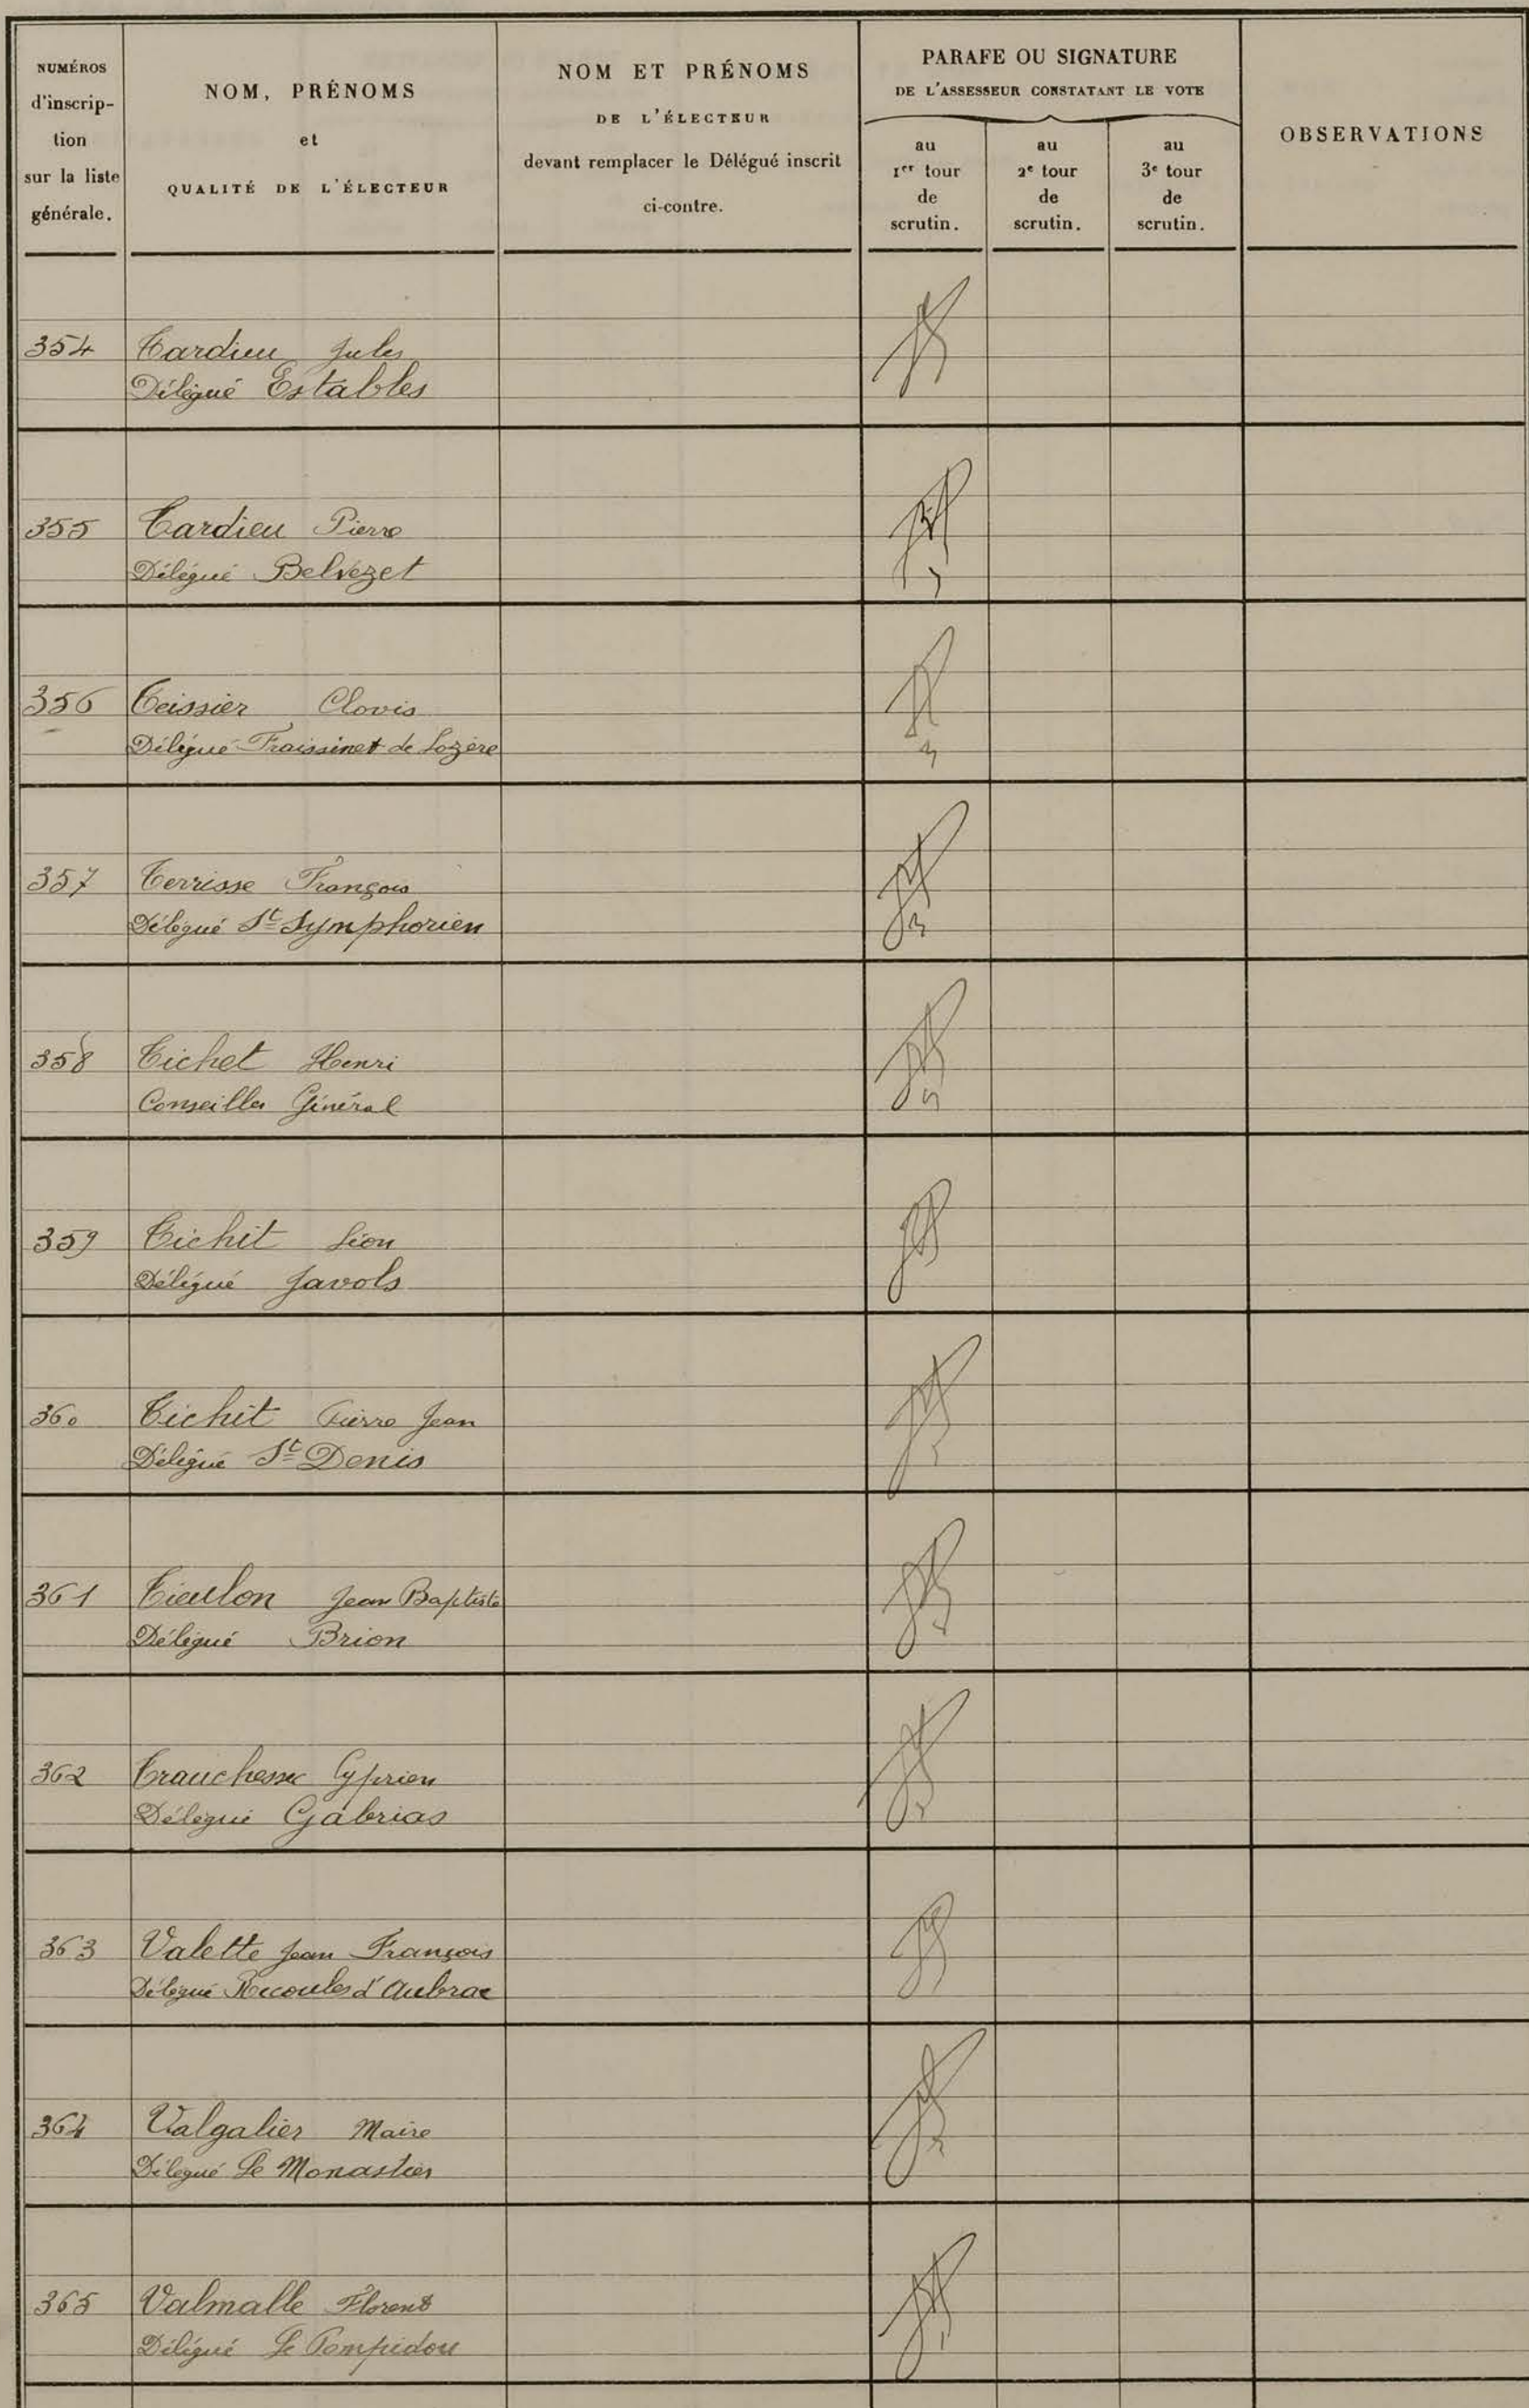 NUMÉROS
d'inscrip-
tion
sur la liste
générale.
NOM, PRÉNOMS
et
QUALITÉ DE L'ÉLECTEUR
NOM ET PRÉNOMS
DE L'ÉLECTEUR
devant remplacer le Délégué inscrit
ci-contre.
PARAFE OU SIGNATURE
DE L'ASSESSEUR CONSTATANT LE VOTE
au
1er tour
de
scrutin.
au
2e tour
de
scrutin.
au
3e tour
de
scrutin.
OBSERVATIONS
354 Tardieu Jules
Délégué Estables
355 Tardieu Pierre
Délégué Belvezet
356 Teissier Clovis
Délégué Fraissinet de Lozère
357 Terrisse François
Délégué St Symphorien
358 Tichet Henri
Conseiller Général
359 Tichit Léon
Délégué Javols
360 Tichit Pierre Jean
Délégué St Denis
361 Tieulon Jean Baptiste
Délégué Brion
362 Trauchessec Cyprien
Délégué Gabrias
363 Valette Jean François
Délégué Recoules d'Aubrac
364 Valgalier Maire
Délégué Le Monastier
365 Valmalle Florent
Délégué Le Pompidou